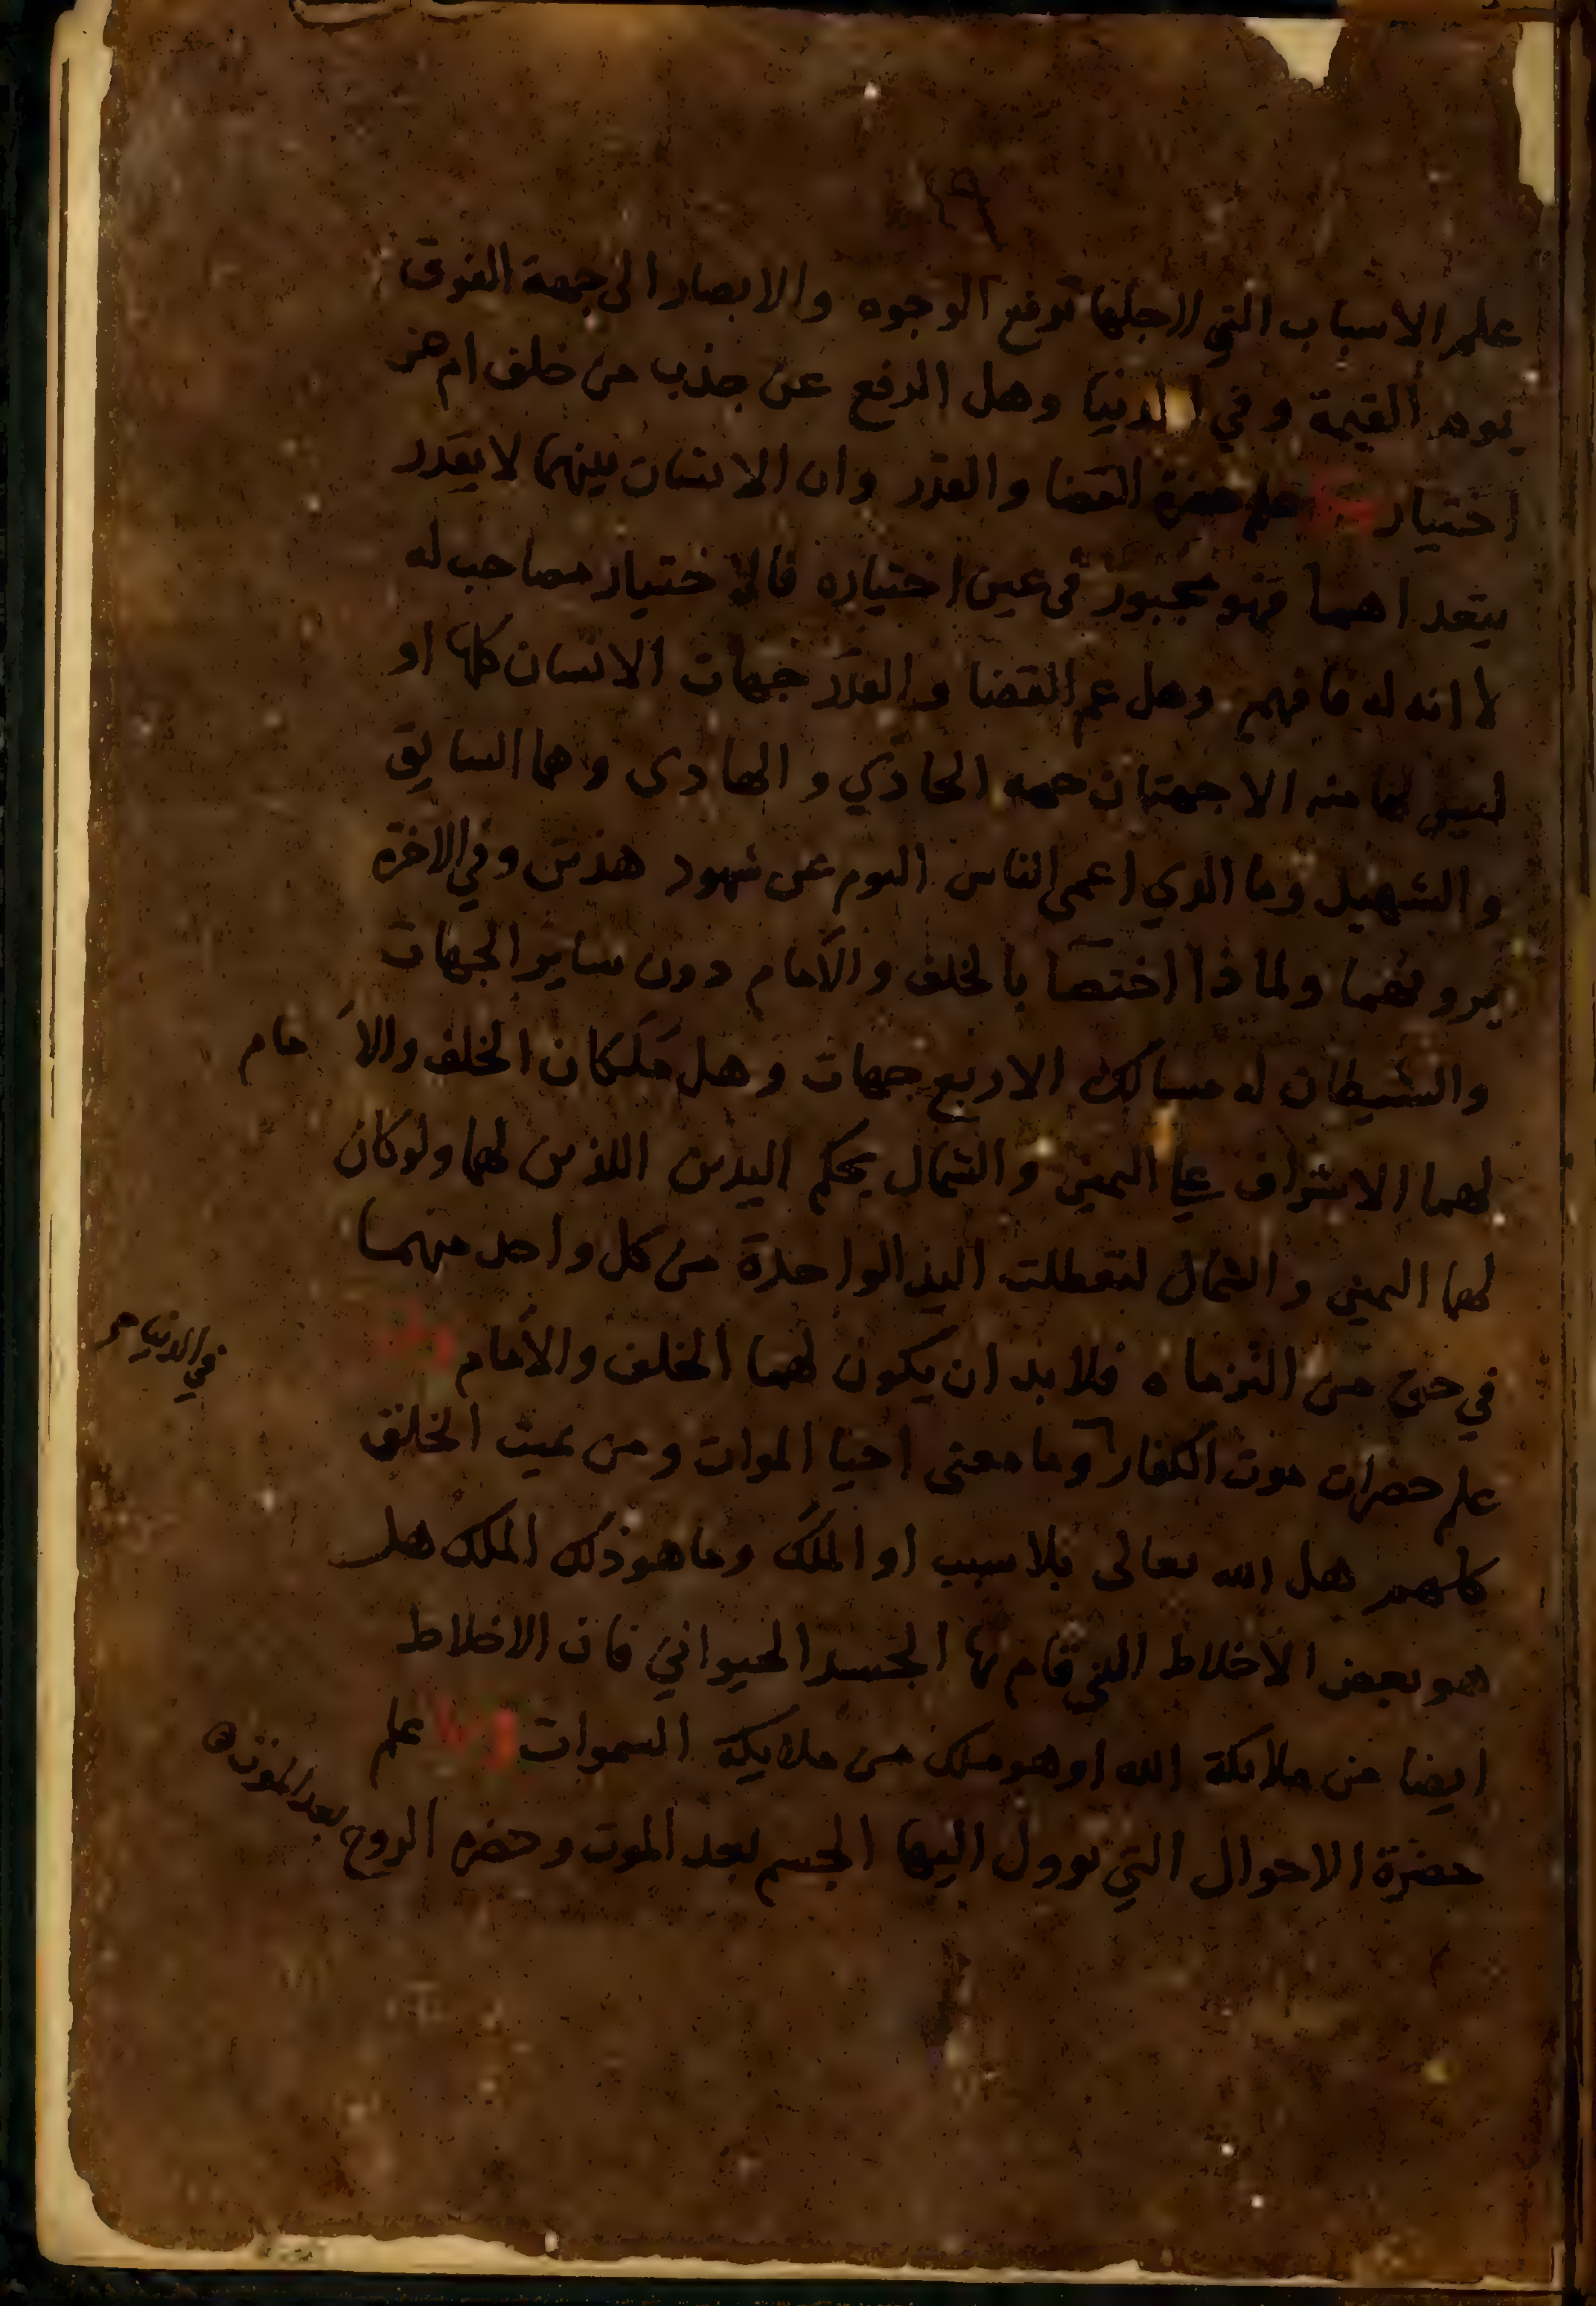 علم الاسباب التي لاجلها ترفع الوجوه والابصار الى جهة الفوق
يوم القيمة وفي الدنيا وهل الرفع عن جذب من خلف ام عن
اختيار علم حضرة القضا والقدر وان الانسان بينهما لا يقدر
يتعداهما فهو مجبور في عين اختياره فالاختيار مصاحب له
لا انه له فافهم وهل عم القضا والقدر جهات الانسان كلها او
ليس لهما منه الا جهتان جهه الحادي والهادي وهما السايق
والشهيد وما الذي اعمى الناس اليوم عن شهود هذين وفي الاخرة
يرونهما ولماذا اختصا بالخلف والأمام دون ساير الجهات
والشيطان له مسالك الاربع جهات وهل مَلَكان الخلف والأمام
لهما الاشراف على اليمين والشمال بحكم اليدين اللذين لهما ولو كان
لهما اليمين والشمال لتعطلت اليد الواحدة من كل واحد منهما
في حق من التزماه فلا بد ان يكون لهما الخلف والأمام ومنها
في الدنيا
علم حضرات موت الكفار وما معنى احيا الموات ومن يميت الخلق
كلهم هل الله تعالى بلا سبب او الملَك وما هو ذلك الملك هل
هو بعض الاخلاط التي قام بها الجسد الحيواني فان الاخلاط
ايضا من ملايكة الله او هو ملك من ملايكة السموات ومنها علم
حضرة الاحوال التي يوول اليها الجسم بعد الموت وحضره الروح بعد الموت